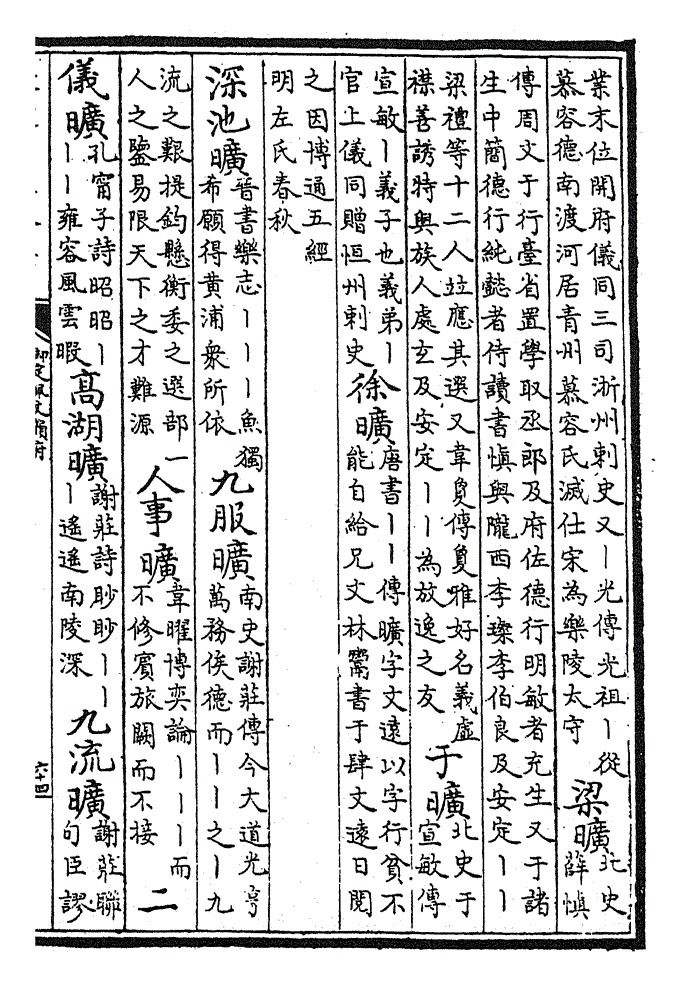 業末位開府儀同三司浙州刺史又丨光傳光祖丨從
慕容德南渡河居青州慕容氏滅仕宋為樂陵太守
梁曠
北史
薛慎
傳周文于行臺省置學取丞郎及府佐德行明敏者充生又于諸
生中簡德行純懿者侍讀書慎與隴西李璨李伯良及安定丨丨
梁禮等十二人竝應其選又韋夐傳夐雅好名義虛
襟善誘特與族人處玄及安定丨丨為放逸之友
于曠
北史于
宣敏傳
宣敏丨義子也義弟丨
官上儀同贈恒州刺史
徐曠
唐書丨丨傳曠字文遠以字行貧不
能自給兄文林鬻書于肆文遠日閱
之因博通五經
明左氏春秋
深池曠
晉書樂志丨丨丨魚獨
希願得黃浦衆所依
九服曠
南史謝莊傳今大道光亨
萬務俟德而丨丨之丨九
流之艱提鈞懸衡委之選部一
人之鑒易限天下之才難源
人事曠
韋曜博奕論丨丨丨而
不修賓旅闕而不接
二
儀曠
孔甯子詩昭昭丨
丨丨雍容風雲暇
高湖曠
謝莊詩眇眇丨丨
丨遙遙南陵深
九流曠
謝莊聯
句臣謬
御定佩文韻府
六十四